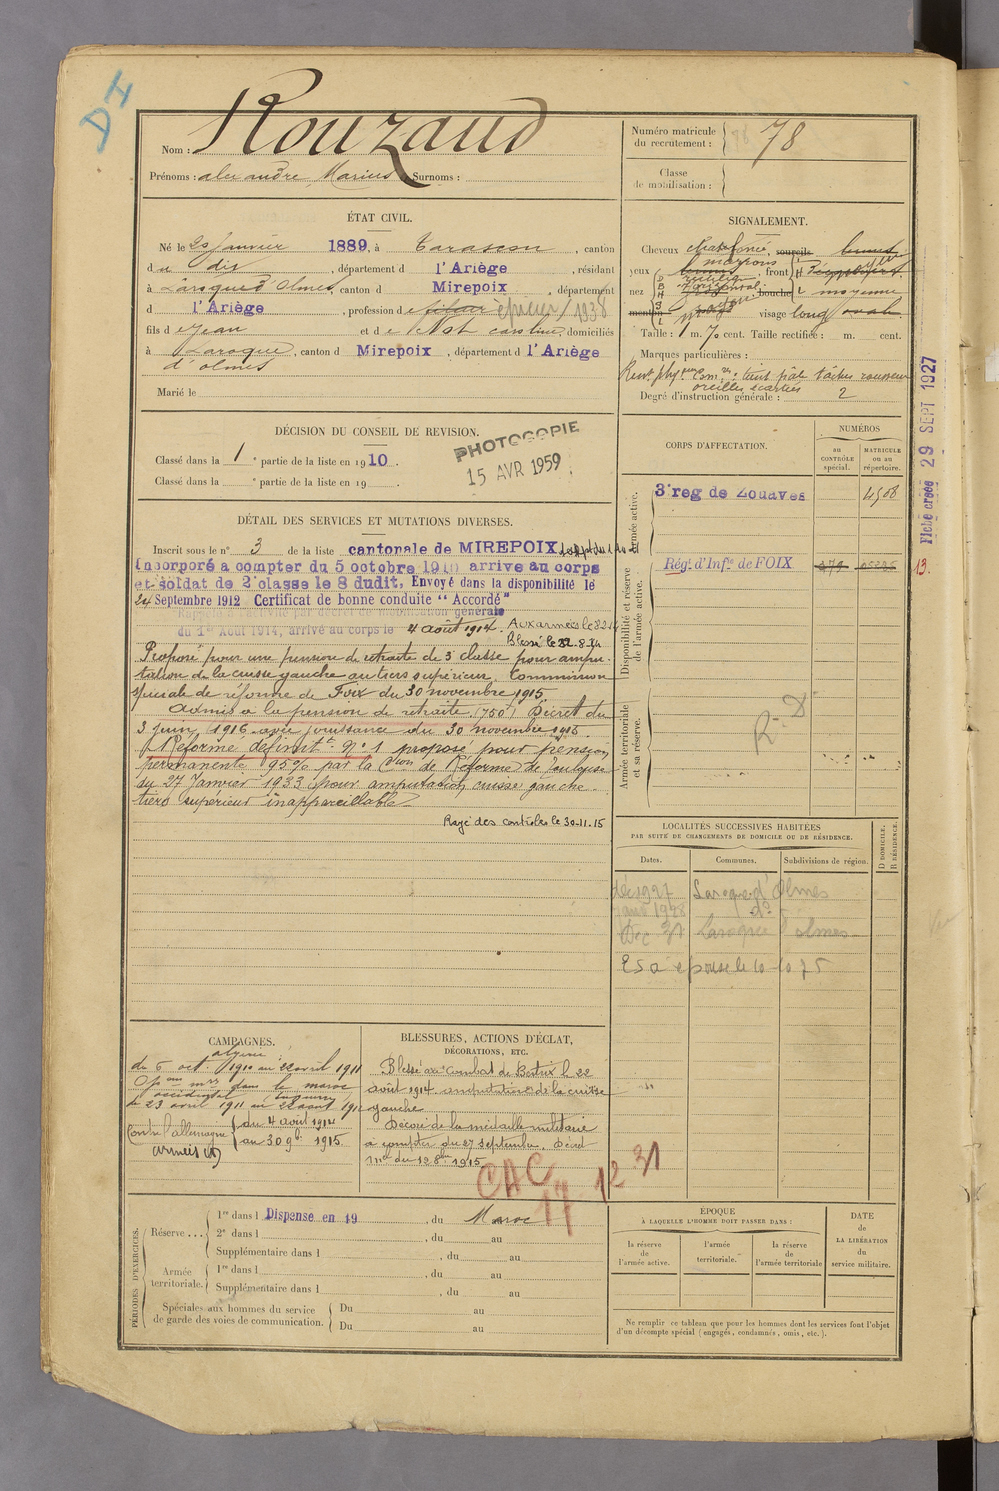 DI
Nom : Rouzaud
Prénoms : alexandre Marius Surnoms :
Numéro matricule du recrutement : 78
Classe de mobilisation :
ÉTAT CIVIL.
Né le janvier 1889, à Tarascon, canton
du dit, département d l'Ariège, résidant
à Laroque d'Olmes, canton d Mirepoix, département
d l'Ariège, profession de fileur épicier / 1938
fils de Jean et de Not caroline, domiciliés
à Laroque d'olmes, canton d Mirepoix, département d l'Ariège
Marié le
SIGNALEMENT.
Cheveux chat foncé, sourcils bruns
yeux marrons, front
nez bouche moyenne
menton visage long ovale
Taille : 1 m. 70 cent. Taille rectifiée : m. cent.
Marques particulières :
teint pâle tâches rousseur
oreilles écartées
Degré d'instruction générale : 2
DÉCISION DU CONSEIL DE REVISION.
Classé dans la 1e partie de la liste en 1910.
Classé dans la e partie de la liste en 19
PHOTOCOPIE
15 AVR 1959
CORPS D'AFFECTATION.
NUMÉROS
au CONTRÔLE spécial.
MATRICULE ou au répertoire.
Armée active.
3e reg de Zouaves 4508
Disponibilité et réserve de l'armée active.
Régt d'Infie de FOIX
13.
Armée territoriale et sa réserve.
R. D
Fiche créée 29 SEPT 1927
DÉTAIL DES SERVICES ET MUTATIONS DIVERSES.
Inscrit sous le n° 3 de la liste cantonale de MIREPOIX
Incorporé a compter du 5 octobre 1910 arrive au corps
et soldat de 2e classe le 8 dudit. Envoyé dans la disponibilité le
24 Septembre 1912 Certificat de bonne conduite "Accordé"
du 1er Août 1914, arrivé au corps le 4 août 1914. Aux armées le 8 2 14
Blessé le 22.8.14
Proposé pour une pension de retraite de 3e classe pour ampu-
tation de la cuisse gauche au tiers supérieur. Commission
spéciale de réforme de Foix du 30 novembre 1915
Admis à la pension de retraite (750f) Décret du
3 juin 1916 avec jouissance du 30 novembre 1915.
Réformé définitt N° 1 proposé pour pension
permanente 95% par la Cion de Réforme de Toulouse
du 27 Janvier 1933 pour amputation cuisse gauche
tiers supérieur inappareillable
Rayé des contrôles le 30-11-15
LOCALITÉS SUCCESSIVES HABITÉES
PAR SUITE DE CHANGEMENTS DE DOMICILE OU DE RÉSIDENCE.
Dates.
Communes.
Subdivisions de région.
D DOMICILE.
R RÉSIDENCE.
déc 1927 Laroque d'Olmes
janv 1928 d°
Déc 31 Laroque d'olmes
CAMPAGNES.
algérie
du 5 oct. 1910 au 22 avril 1911
Opons mres dans le maroc
occidental
du 23 avril 1911 au 22 août 1912
Contre l'allemagne du 4 août 1914
au 30 9bre 1915.
armées
BLESSURES, ACTIONS D'ÉCLAT,
DÉCORATIONS, ETC.
Blessé au combat de Bertrix le 22
août 1914 amputation de la cuisse
gauche
Décoré de la médaille militaire
à compter du 27 septembre. Décret
1915
CAC
17 12 31
PÉRIODES D'EXERCICES.
Réserve...
1re dans l Dispense en 19, du Maroc
2e dans l, du au
Supplémentaire dans l, du au
Armée territoriale.
1re dans l, du au
Supplémentaire dans l, du au
Spéciales aux hommes du service de garde des voies de communication.
Du au
Du au
ÉPOQUE
À LAQUELLE L'HOMME DOIT PASSER DANS :
la réserve de l'armée active.
l'armée territoriale.
la réserve de l'armée territoriale
DATE de LA LIBÉRATION du service militaire.
Ne remplir ce tableau que pour les hommes dont les services font l'objet
d'un décompte spécial (engagés, condamnés, omis, etc.).